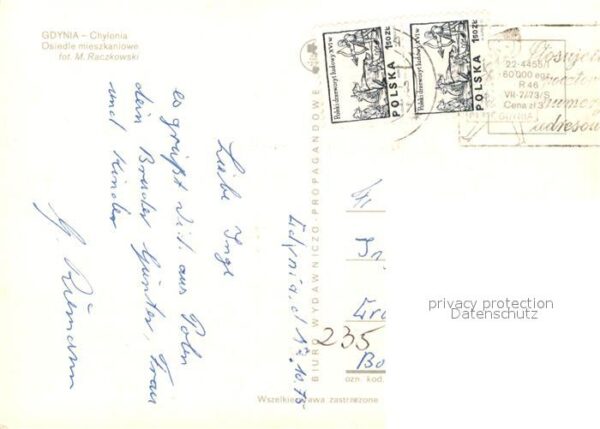 GDYNIA – Chylonia
Osiedle mieszkaniowe
fot. M. Raczkowski
Liebe Inge
es grüßt Dich aus Polen
dein Bruder Günter, Frau
und Kinder
Gdynia, d 17.10.75
BIURO WYDAWNICZO-PROPAGANDOWE
Polski drzeworyt ludowy XVI w
POLSKA 1.50 ZŁ
Polski drzeworyt ludowy XVI w
POLSKA 1.50 ZŁ
22-4455/I
60 000 egz
R 46
VII-7/73/S
Cena zł 3
GDYNIA
Fr
In
235
Bo
ozn. kod.
Wszelkie prawa zastrzeżone
privacy protection
Datenschutz